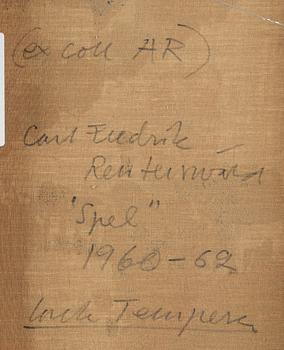 (ex coll AR)
Carl Fredrik
Reuterswärd
"Spel"
1960-62
Tempera